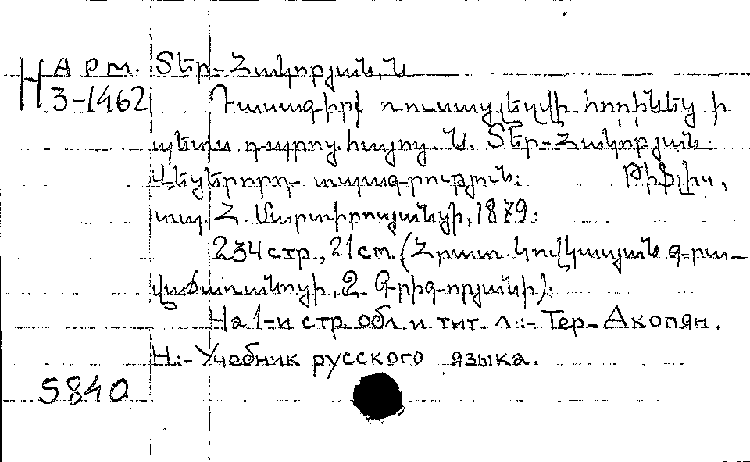 Н Арм. Տեր-Հակոբյան, Ն
3-1462 Դասագիրք ռուսաց լեզվի հորինեց ի
պետս դպրոց հայոց Ն. Տեր-Հակոբյան:
Վեցերորդ տպագրություն: Թիֆլիս,
տպ. Հ. Մարտիրոսյանցի, 1879:
234 стр., 21 см (Հրատ. կովկասյան գրա-
վաճառանոցի, Զ. Գրիգորյանի):
На 1-и стр. обл. и тит. л:- Тер-Акопян.
Н:- Учебник русского языка.
5840